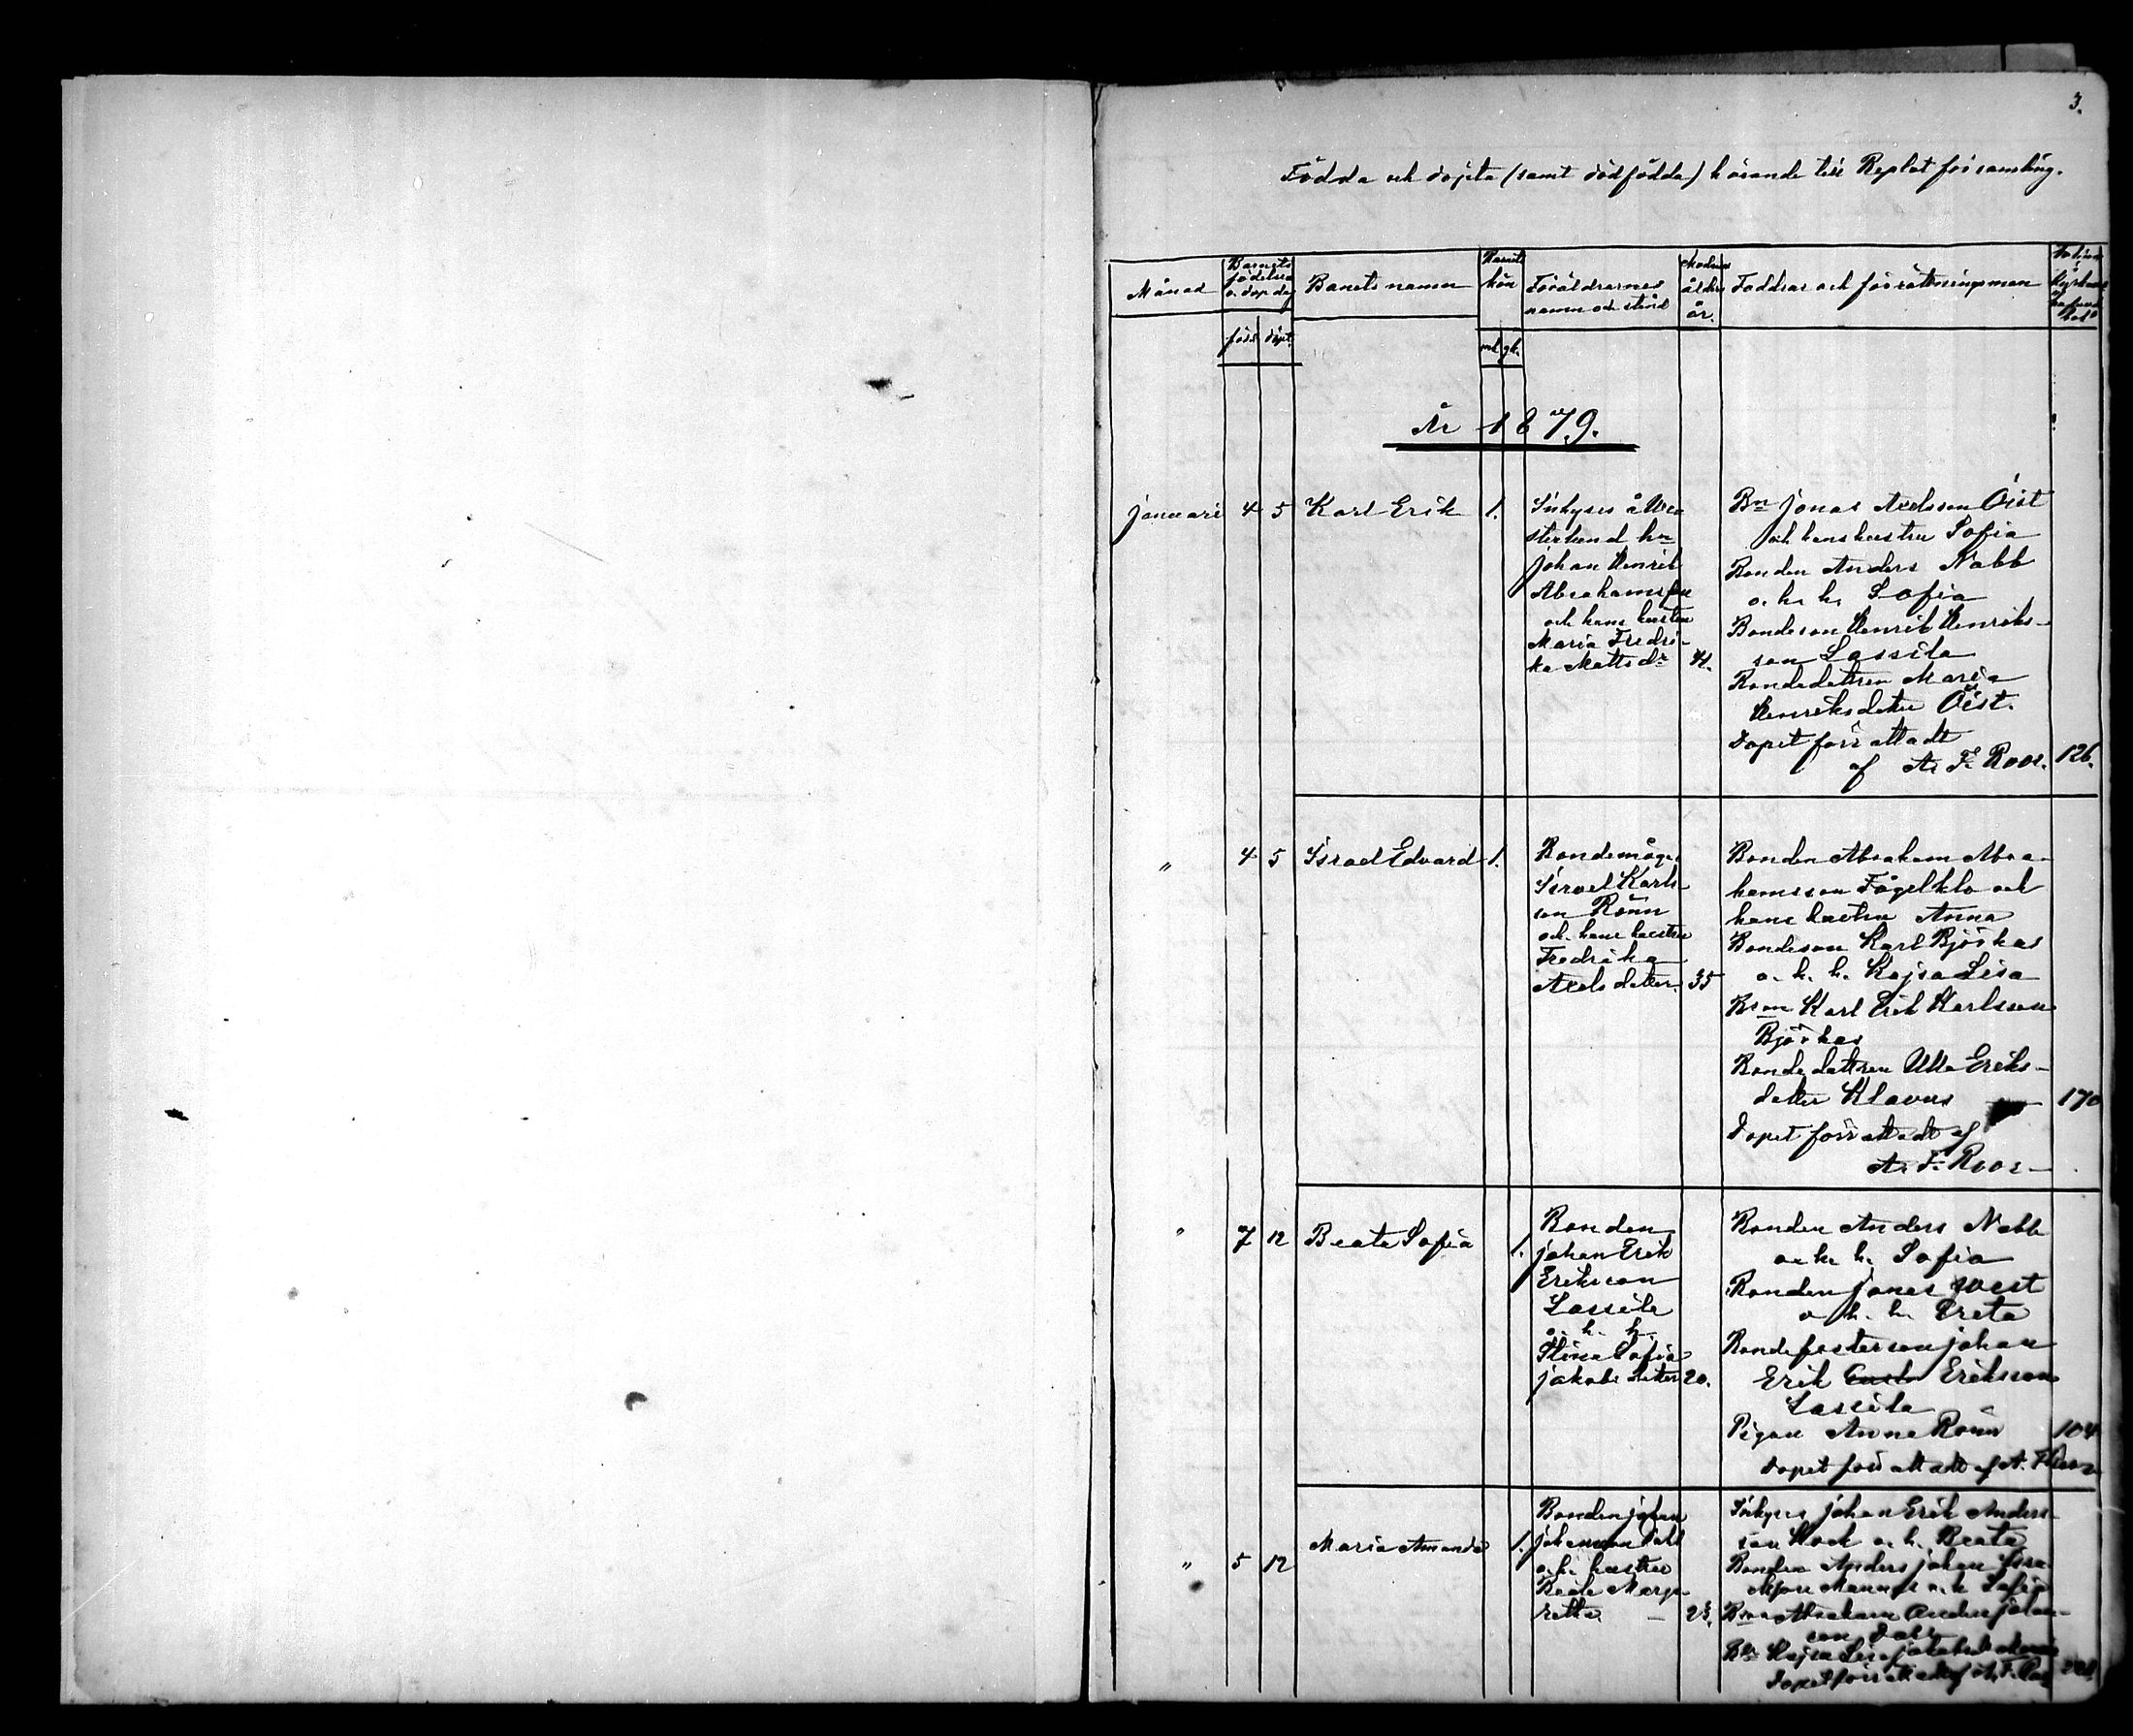 3.
Födda och döpta (samt dödfödda) hörande till Replot församling.
Månad
Barnets födelse o. dop dag
född döpt
Barnets namn
Barnets kön
ml. qk.
Föräldrarnes namn och stånd
Modrens ålder år.
Faddrar och förrättningsman
År 1879.
Januari 4 5 Karl Erik 1.
Inhyses å Ve-
sterlund hn
Johan Henrik
Abrahamsson
och hans hustru
Maria Fredri-
ka Mattsdr 41.
Bn Jonas Axelsson Öist
och hans hustru Sofia
Bonden Anders Nabb
o. h. h. Sofia
Bondeson Henrik Henriks-
son Lassila
Bondedottren Maria
Henriksdotter Öist.
Dopet förrättadt
af A. F. Roos. 126.
" 4 5 Israel Edvard 1.
Bondemågen
Israel Karls-
son Rönn
och hans hustru
Fredrika
Axelsdotter 35
Bonden Abraham Abra-
hamsson Fogelklo och
hans hustru Anna
Bondeson Karl Björkas
o. h. h. Kajsa Lisa
Bson Karl Erik Karlsson
Björkas
Bondedottren Ulla Eriks-
dotter Klavus 170
Dopet förrättadt af
A. F. Roos
" 7 12 Beata Sofia 1.
Bonden
Johan Erik
Eriksson
Lassila
o. h. h.
Stina Sofia
Jakobsdotter 20.
Bonden Anders Nabb
o. h. h. Sofia
Bonden Jonas West
o. h. h. Greta
Bondefosterson Johan
Erik Eriksson
Lassila
Pigan Anna Rönn 104
Dopet förrättadt af A. F. Roos
" 5 12 Maria Amanda 1.
Bonden Johan
Johansson Dahl
o. h. hustru
Beata Marga-
retha 23.
Inhyses Johan Erik Anders-
son Hock o. h. Beata
Bonden Anders Johan Isra-
elsson o. h. Sofia
Bson Abraham Anders Johans-
son Dahl
Kajsa Lisa
Dopet förrättadt af A. F. Roos